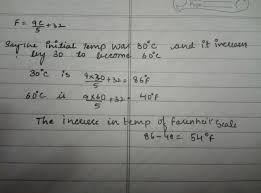 F = 9C/5 + 32
Say the initial temp was 30°C and it increases
by 30 to become 60°C
30°C is 9x30/5 + 32 = 86°F
60°C is 9x60/5 + 32 = 40°F
The increase in temp of Farenhait Scale
86 - 40 = 54°F